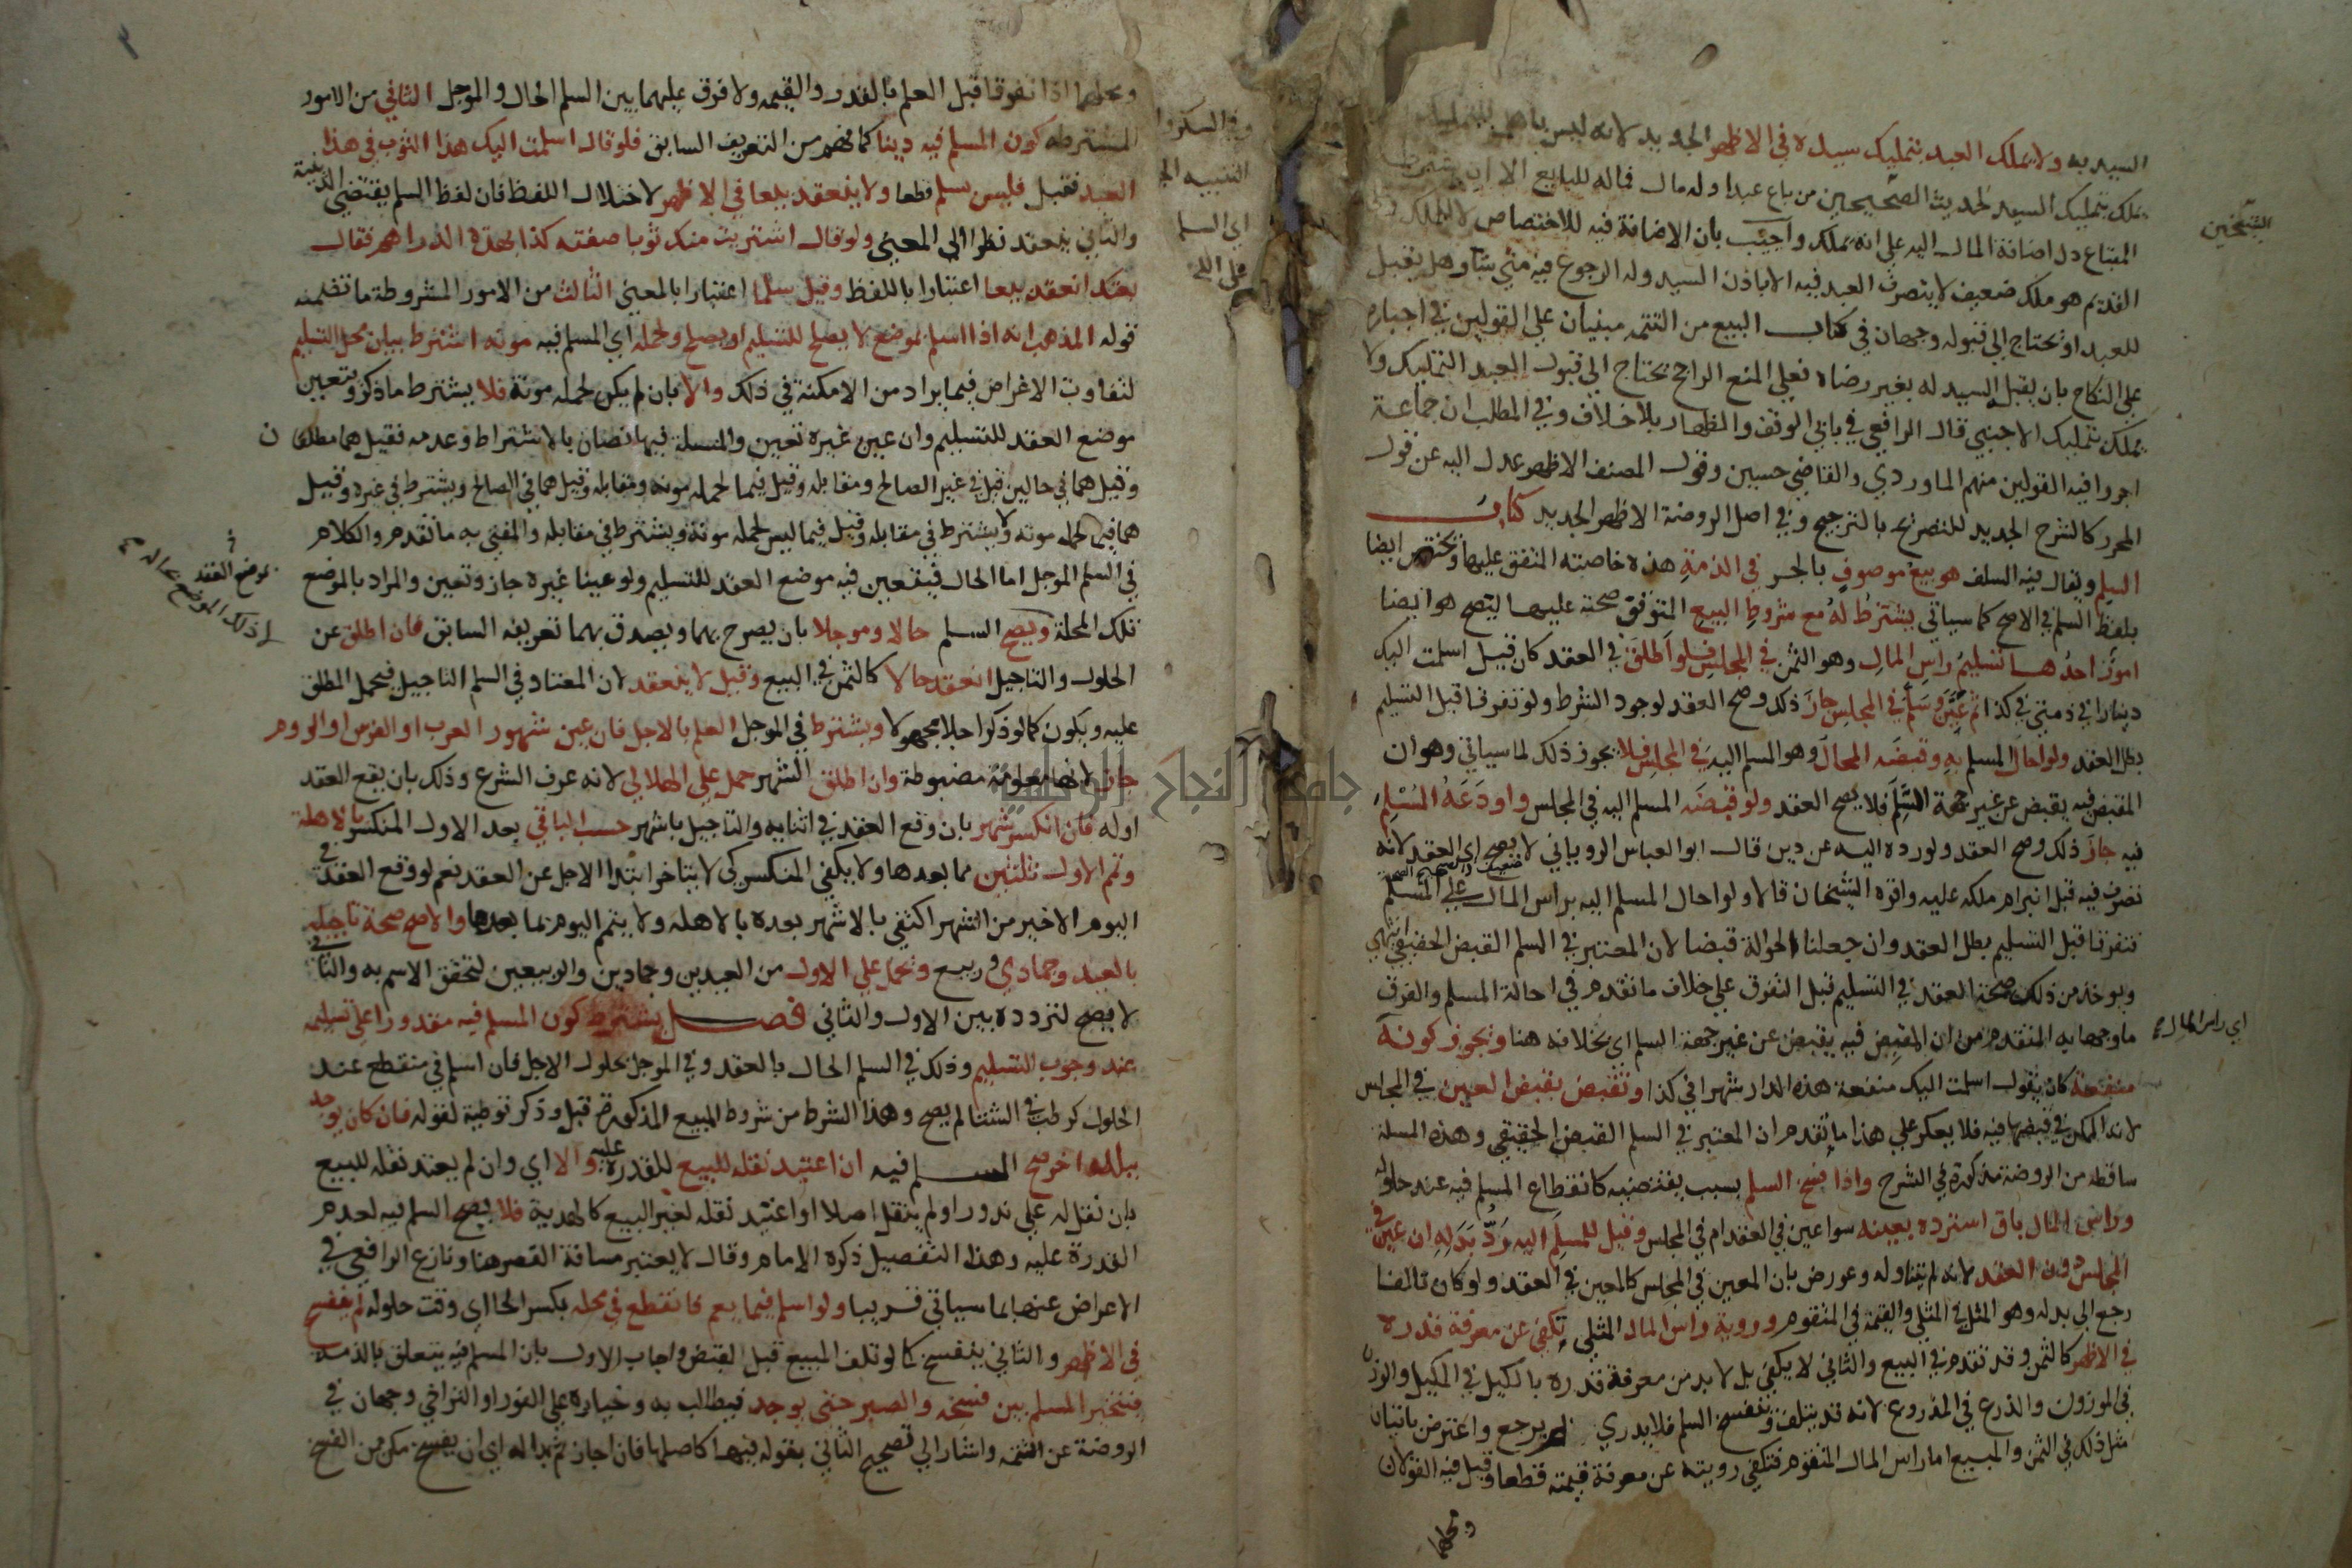 السيد به ولا يملك العبد بتمليك سيده في الاظهر الجديد لانه ليس باهل للتمليك
يملك بتمليك السيد لحديث الصحيحين من باع عبدا وله مال فماله للبايع الا ان يشترط
المبتاع دل اضافة المال اليه على انه يملك واجيب بان الاضافة فيه للاختصاص لا للملك
القديم هو ملك ضعيف لا يتصرف العبد فيه الا باذن السيد وله الرجوع فيه متى شا وهل يقبل
للعبد او يحتاج الى قبوله وجهان في كتاب البيع من التتمه مبنيان على القولين في اجباره
على النكاح بان يقبل السيد له بغير رضاه فعلى المنع الراجح يحتاج الى قبول العبد التمليك ولا
يملك بتمليك الاجنبي قال الرافعي في بابي الوقف والظهار بلا خلاف وفي المطلب ان جماعة
اجروا فيه القولين منهم الماوردي والقاضي حسين وقول المصنف الاظهر عدل اليه عن قول
المحرر كالشرح الجديد للتصريح بالترجيح وفي اصل الروضة الاظهر الجديد كتاب
السلم ويقال فيه السلف هو بيع موصوف بالجر في الذمة هذه خاصته المتفق عليها ويختص ايضا
بلفظ السلم في الاصح كما سياتي يشترط له مع شروط البيع المتوقف صحته عليها ليصح هو ايضا
امور احدها تسليم راس المال وهو الثمن في المجلس فلو اطلق في العقد كان قيل اسلمت اليك
دينارا في ذمتي في كذا ثم عين وسلم في المجلس جاز ذلك وصح العقد لوجود الشرط ولو تفرقا قبل التسليم
بطل العقد ولو احال المسلم به وقبضه المحال وهو المسلم اليه في المجلس فلا يجوز ذلك لما سياتي وهو ان
المقبض فيه يقبض عن غير جهة السلم فلا يصح العقد ولو قبضه المسلم اليه في المجلس واودعه المسلم
فيه جاز ذلك وصح العقد ولو رده اليه عن دين قال ابو العباس الروياني لا يصح اي العقد لانه
تصرف فيه قبل انبرام ملكه عليه واقره الشيخان قالا ولو احال المسلم اليه براس المال على المسلم
فتفرقا قبل التسليم بطل العقد وان جعلنا الحوالة قبضا لان المعتبر في السلم القبض الحقيقي انتهى
ويوخذ من ذلك صحة العقد في التسليم قبل التفرق على خلاف ما تقدم في احالة المسلم والفرق
ما وجهنا به المتقدم من ان المقبض فيه يقبض عن غير جهة السلم اي بخلافه هنا ويجوز كونه
منفعة كان يقول اسلمت اليك منفعة هذه الدار شهرا في كذا وتقبض بقبض العين في المجلس
لانه الممكن في قبضها فيه فلا يعكر على هذا ما تقدم ان المعتبر في السلم القبض الحقيقي وهذه المسلة
ساقطه من الروضة مذكورة في الشرح واذا فسخ السلم بسبب يقتضيه كانقطاع المسلم فيه عند حلوله
وراس المال باق استرده بعينه سوا عين في العقد ام في المجلس وقيل للمسلم اليه رد بدله ان عين في
المجلس دون العقد لانه لم يتناوله وعورض بان المعين في المجلس كالمعين في العقد ولو كان تالفا
رجع الى بدله وهو المثل في المثلي والقيمة في المتقوم ورؤية راس المال المثلي تكفي عن معرفة قدره
في الاظهر كالثمن وقد تقدم في البيع والثاني لا يكفي بل لا بد من معرفة قدره بالكيل في المكيل والوزن
في الموزون والذرع في المذروع لانه قد يتلف وينفسخ السلم فلا يدري بم يرجع واعترض باتيان
مثل ذلك في الثمن والمبيع اما راس المال المتقوم فتكفي رويته عن معرفة قيمته قطعا وقيل فيه القولان
ومحلهما
الشيخين
اي راس المال
ومحلهما اذا تفرقا قبل العلم بالقدر والقيمه ولا فرق عليهما بين السلم الحال والموجل الثاني من الامور
المشترطه كون المسلم فيه دينا كما فهم من التعريف السابق فلو قال اسلمت اليك هذا الثوب في هذا
العبد فقبل فليس سلم قطعا ولا ينعقد بيعا في الاظهر لاختلال اللفظ فان لفظ السلم يقتضي الدينية
والثاني ينعقد نظرا الى المعنى ولو قال اشتريت منك ثوبا صفته كذا بهذه الدراهم فقال
بعتك انعقد بيعا اعتبارا باللفظ وقيل سلما اعتبارا بالمعنى الثالث من الامور المشروطة ما تضمنه
قوله المذهب انه اذا اسلم بموضع لا يصلح للتسليم او يصلح ولحمله اي المسلم فيه مونه اشترط بيان محل التسليم
لتفاوت الاغراض فيما يراد من الامكنة في ذلك والا بان لم يكن لحمله مونة فلا يشترط ما ذكر ويتعين
موضع العقد للتسليم وان عين غيره تعين والمسلة فيها نصان بالاشتراط وعدمه فقيل هما مطلقا
وقيل هما في حالين قيل في غير الصالح ومقابله وقيل فيما لحمله مونه ومقابله وقيل هما في الصالح ويشترط في غيره وقيل
هما فيما لحمله مونه ولا يشترط في مقابله وقيل فيما ليس لحمله مونة ويشترط في مقابله والمفتى به ما تقدم والكلام
في السلم الموجل اما الحال فيتعين فيه موضع العقد للتسليم ولو عينا غيره جاز وتعين والمراد بالموضع
تلك المحلة ويصح السلم حالا وموجلا بان يصرح بهما ويصدق بهما تعريفه السابق فان اطلق عن
الحلول والتاجيل انعقد حالا كالثمن في البيع وقيل لا ينعقد لان المعتاد في السلم التاجيل فيحمل المطلق
عليه ويكون كما لو ذكرا اجلا مجهولا ويشترط في الموجل العلم بالاجل فان عين شهور العرب او الفرس او الروم
جاز لانها معلومة مضبوطة وان اطلق الشهر حمل على الهلالي لانه عرف الشرع وذلك بان يقع العقد
اوله فان انكسر شهر بان وقع العقد في اثنايه والتاجيل باشهر حسب الباقي بعد الاول المنكسر بالاهلة
وتمم الاول ثلثين مما بعدها ولا يكفي المنكسر كي لا يتاخر ابتدا الاجل عن العقد نعم لو وقع العقد في
اليوم الاخير من الشهر اكتفي بالاشهر بعده بالاهله ولا يتمم اليوم مما بعدها والاصح صحة تاجيله
بالعيد وجمادي وربيع ويحمل على الاول من العيدين وجمادين والربيعين لتحقق الاسم به والثاني
لا يصح لتردده بين الاول والثاني فصل يشترط كون المسلم فيه مقدورا على تسليمه
عند وجوب التسليم وذلك في السلم الحال بالعقد وفي الموجل بحلول الاجل فان اسلم في منقطع عند
الحلول كرطب في الشتا لم يصح وهذا الشرط من شروط المبيع المذكورة قبل وذكر توطية لقوله فان كان يوجد
ببلد اخر صح السلم فيه ان اعتيد نقله للبيع للقدرة عليه والا اي وان لم يعتد نقله للبيع
بان نقل له على ندور او لم ينقل اصلا او اعتيد نقله لغير البيع كالهدية فلا يصح السلم فيه لعدم
القدرة عليه وهذا التفصيل ذكره الامام وقال لا يعتبر مسافة القصر هنا ونازع الرافعي في
الاعراض عنها بما سياتي قريبا ولو اسلم فيما يعم فانقطع في محله بكسر الحا اي وقت حلوله لم ينفسخ
في الاظهر والثاني ينفسخ كما لو تلف المبيع قبل القبض واجاب الاول بان المسلم فيه يتعلق بالذمة
فيتخير المسلم بين فسخه والصبر حتى يوجد فيطالب به وخياره على الفور او التراخي وجهان في
الروضة عن التتمه واشار الى تصحيح الثاني بقوله فيها كاصلها فان اجاز ثم بدا له اي ان يفسخ مكن من الفسخ
موضع العقد
جامعة النجاح الوطنية